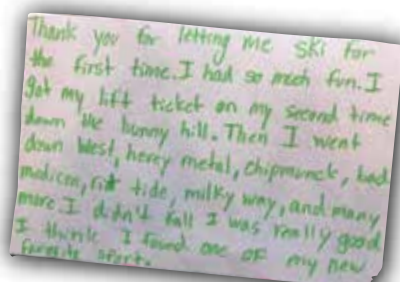 Thank you for letting me ski for
the first time. I had so much fun. I
got my lift ticket on my second time
down the bunny hill. Then I went
down West, hevey metal, chipmunck, bad
medicen, rip tide, milky way, and many
more. I didn't fall I was really good
I think I found one of my new
favorite sports.